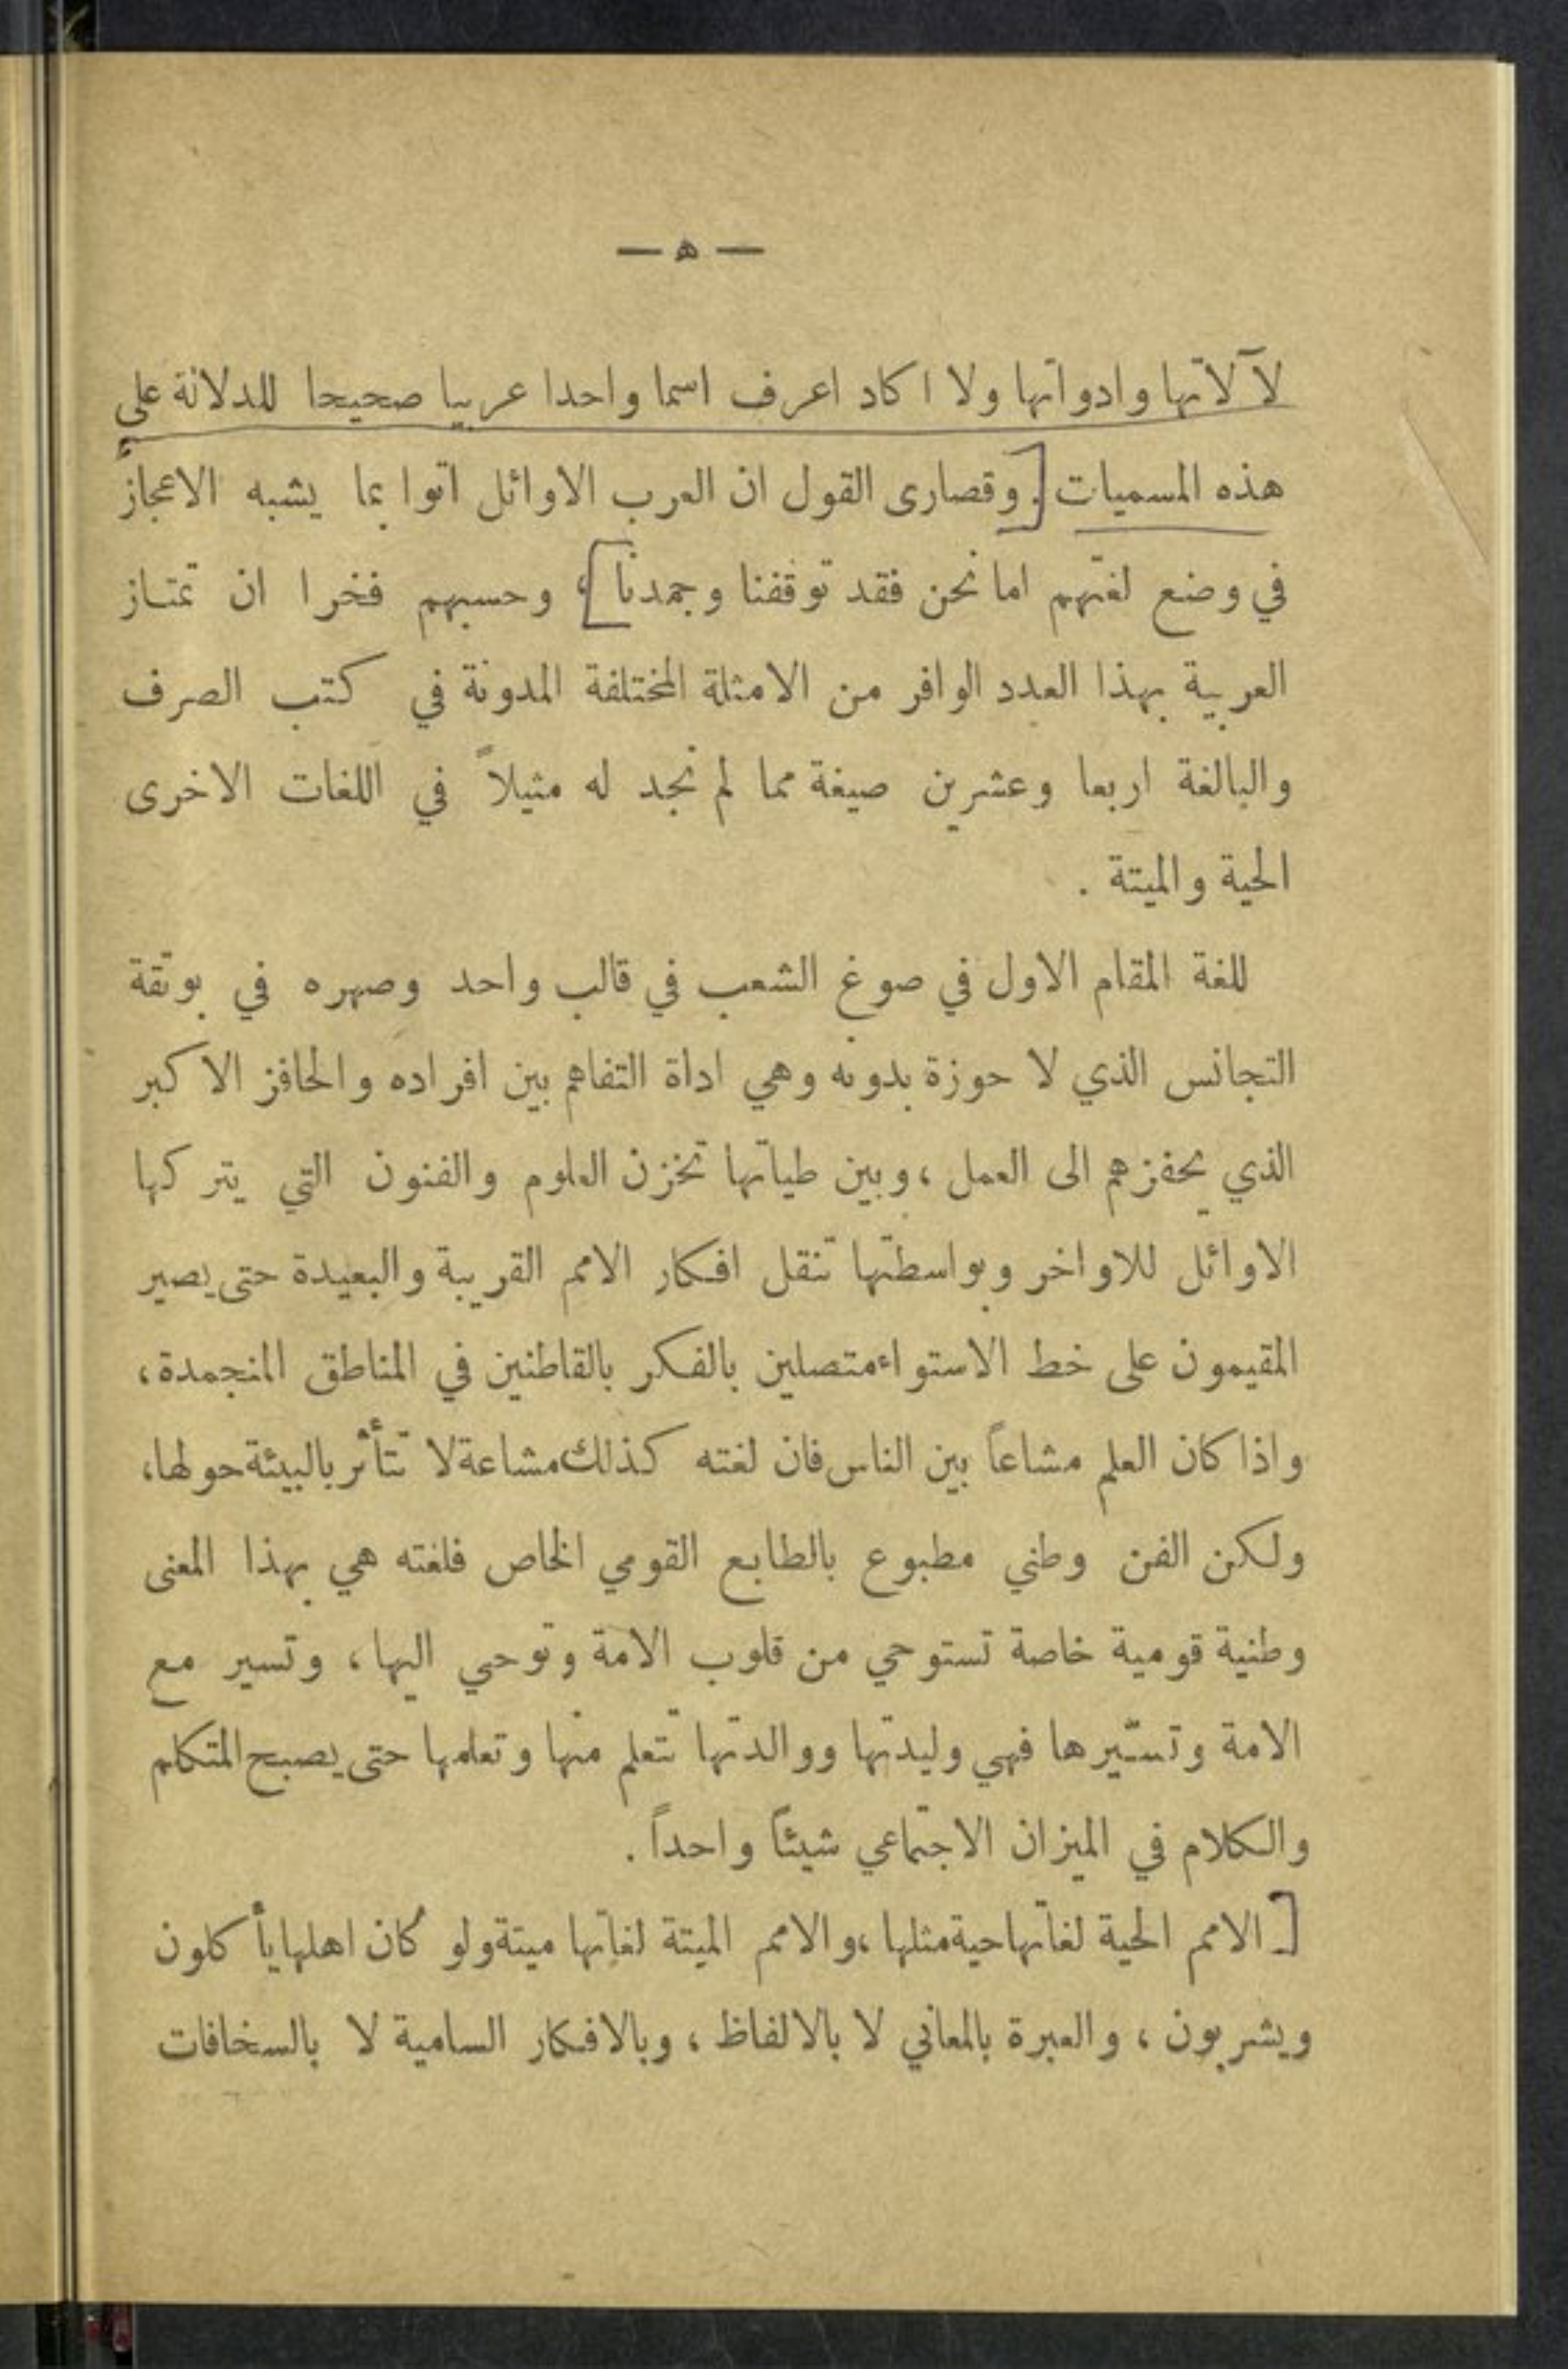 — ه —
لآلاتها وادواتها ولا اكاد اعرف اسما واحدا عربيا صحيحا للدلالة على
هذه المسميات [. وقصارى القول ان العرب الاوائل اتوا بما يشبه الاعجاز
في وضع لغتهم اما نحن فقد توقفنا وجمدنا]، وحسبهم فخرا ان تمتاز
العربية بهذا العدد الوافر من الامثلة المختلفة المدونة في كتب الصرف
والبالغة اربعا وعشرين صيغة مما لم نجد له مثيلاً في اللغات الاخرى
الحية والميتة .
للغة المقام الاول في صوغ الشعب في قالب واحد وصهره في بوتقة
التجانس الذي لا حوزة بدونه وهي اداة التفاهم بين افراده والحافز الاكبر
الذي يحفزهم الى العمل ، وبين طياتها تخزن العلوم والفنون التي يتركها
الاوائل للاواخر وبواسطتها تنقل افكار الامم القريبة والبعيدة حتى يصير
المقيمون على خط الاستواء متصلين بالفكر بالقاطنين في المناطق المنجمدة،
واذا كان العلم مشاعاً بين الناس فان لغته كذلك مشاعة لا تتأثر بالبيئة حولها،
ولكن الفن وطني مطبوع بالطابع القومي الخاص فلغته هي بهذا المعنى
وطنية قومية خاصة تستوحي من قلوب الامة وتوحي اليها ، وتسير مع
الامة وتسيّرها فهي وليدتها ووالدتها تتعلم منها وتعلمها حتى يصبح المتكلم
والكلام في الميزان الاجتماعي شيئاً واحداً .
[ الامم الحية لغاتها حية مثلها ، والامم الميتة لغاتها ميتة ولو كان اهلها يأكلون
ويشربون ، والعبرة بالمعاني لا بالالفاظ ، وبالافكار السامية لا بالسخافات